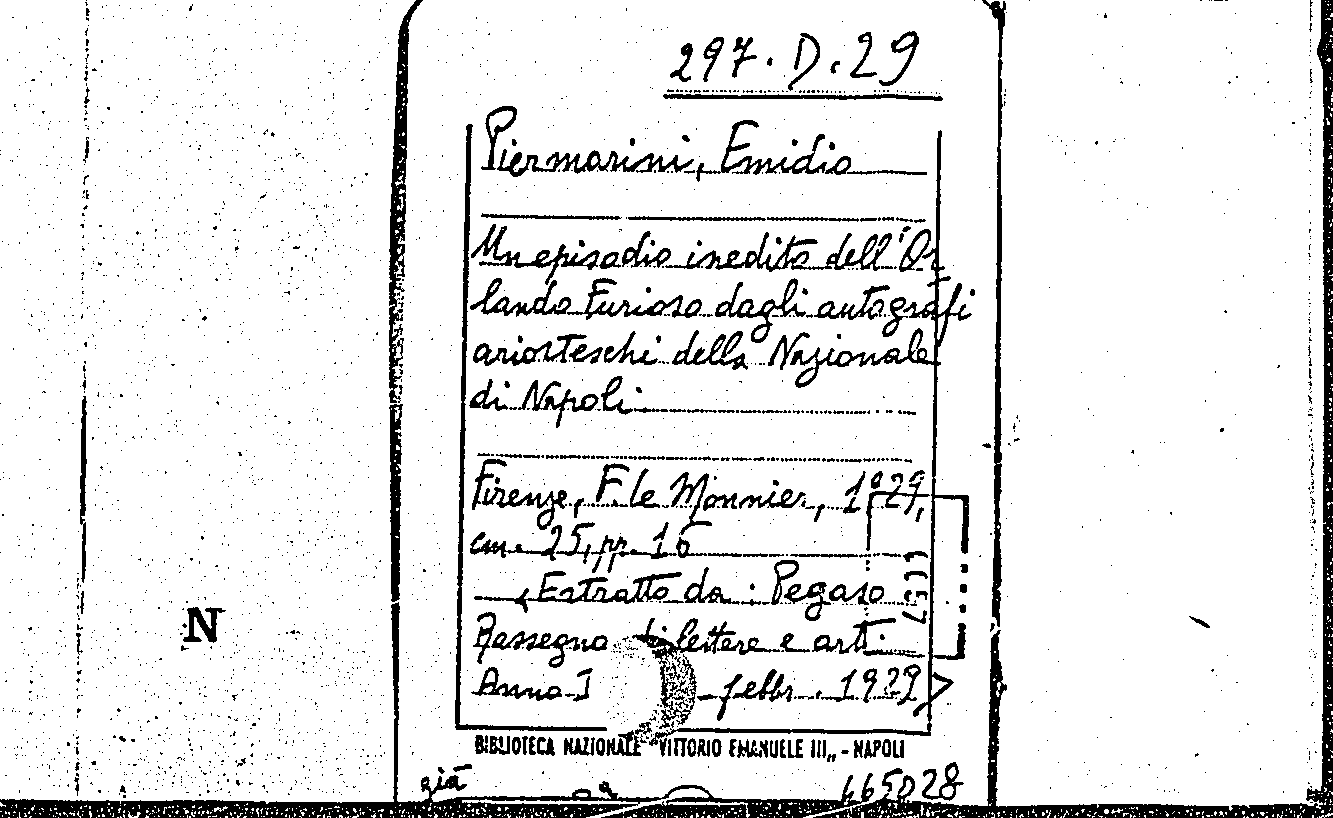 297.D.29
Piermarini, Emidio
Un episodio inedito dell'Or
lando Furioso dagli autografi
ariosteschi della Nazionale
di Napoli
Firenze, F. le Monnier, 1929,
cm. 25, pp. 16
< Estratto da : Pegaso
Rassegna di lettere e arti
Anno I febbr. 1929 >
N
BIBLIOTECA NAZIONALE "VITTORIO EMANUELE III„ - NAPOLI
già
465028